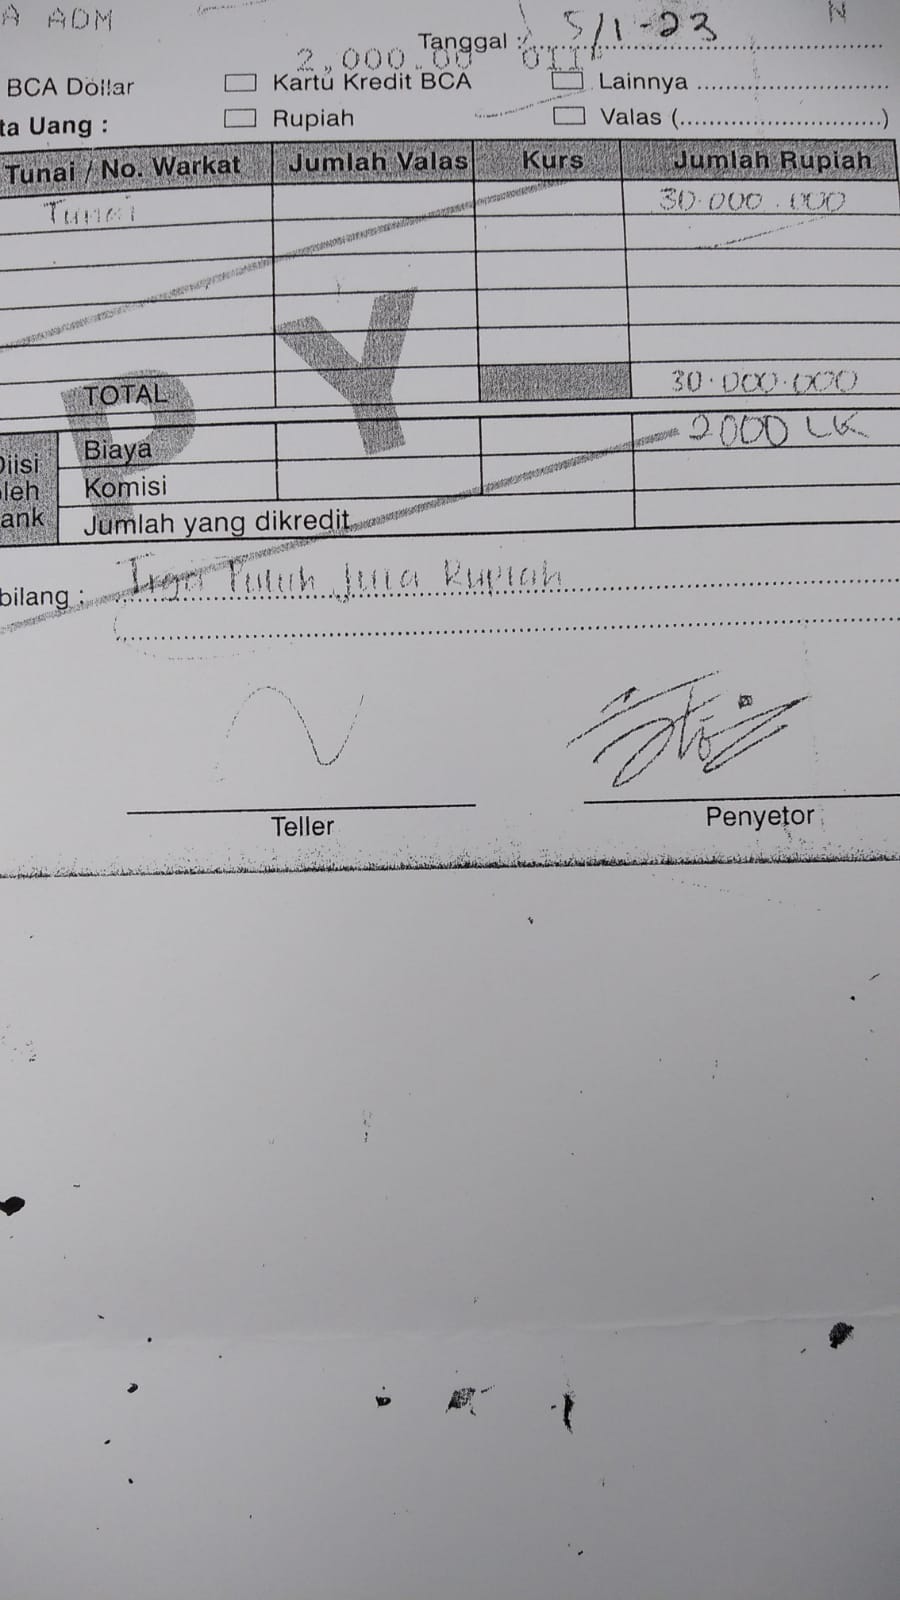 A ADM N
Tanggal : 5/1-23
2,000.00 OTI
BCA Dollar Kartu Kredit BCA Lainnya
ta Uang : Rupiah Valas (..............................)
Tunai / No. Warkat Jumlah Valas Kurs Jumlah Rupiah
Tunai 30.000.000
TOTAL 30.000.000
PY
Diisi Biaya 2000 LK
oleh Komisi
ank Jumlah yang dikredit
bilang : Tiga Puluh Juta Rupiah
Teller Penyetor